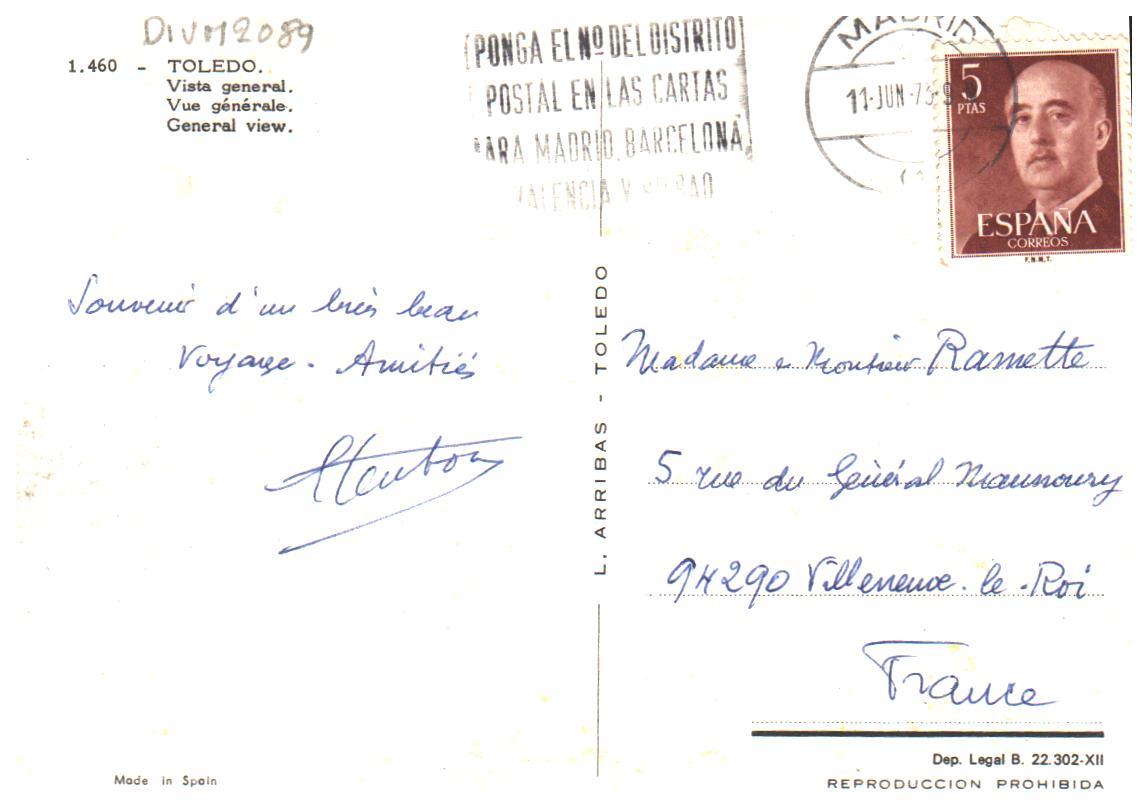 DIVM2089
1.460 - TOLEDO.
Vista general.
Vue générale.
General view.
PONGA EL Nº DEL DISTRITO
POSTAL EN LAS CARTAS
ARA MADRID, BARCELONA
VALENCIA Y BILBAO
MADRID
11-JUN-73
5
PTAS
ESPAÑA
CORREOS
F.N.M.T.
Souvenir d'un très beau
voyage - Amitiés
L. ARRIBAS - TOLEDO
Madame e Monsieur Ramette
5 rue du Général Maunoury
94290 Villeneuve-le-Roi
France
Dep. Legal B. 22.302-XII
REPRODUCCION PROHIBIDA
Made in Spain